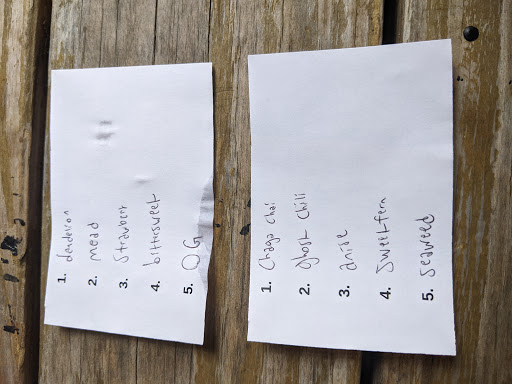 1. dandelion
2. mead
3. Strawberry
4. bittersweet
5. OG
1. Chaga Chai
2. ghost Chili
3. anise
4. Sweetfern
5. Seaweed